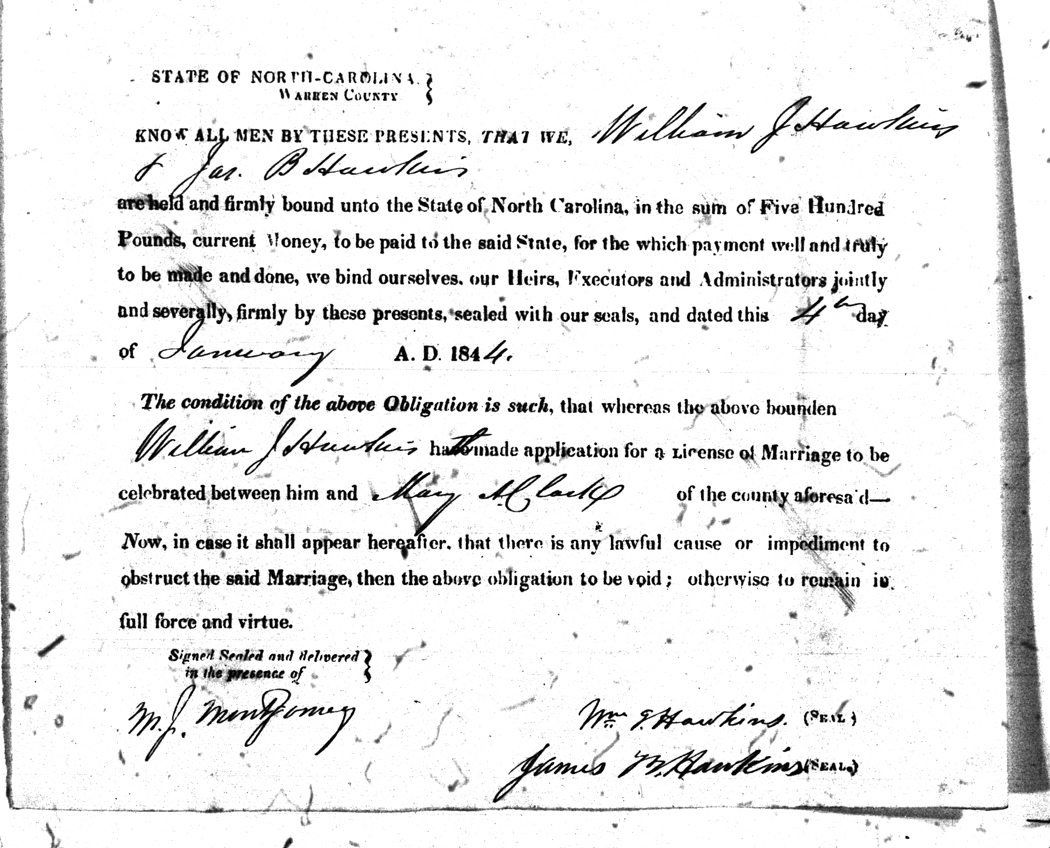 STATE OF NORTH-CAROLINA.
WARREN COUNTY
KNOW ALL MEN BY THESE PRESENTS, THAT WE, William J Hawkins
& Jas. B Hawkins
are held and firmly bound unto the State of North Carolina, in the sum of Five Hundred
Pounds, current Money, to be paid to the said State, for the which payment well and truly
to be made and done, we bind ourselves. our Heirs, Executors and Administrators jointly
and severally, firmly by these presents, sealed with our seals, and dated this 4th day
of January A. D. 1844.
The condition of the above Obligation is such, that whereas the above bounden
William J Hawkins hath made application for a License of Marriage to be
celebrated between him and Mary A. Clark of the county aforesa'd—
Now, in case it shall appear hereafter. that there is any lawful cause or impediment to
obstruct the said Marriage, then the above obligation to be void; otherwise to remain in
full force and virtue.
Signed Sealed and delivered
in the presence of
M. J. Montgomery
Wm J. Hawkins. (SEAL)
James B. Hawkins (SEAL.)